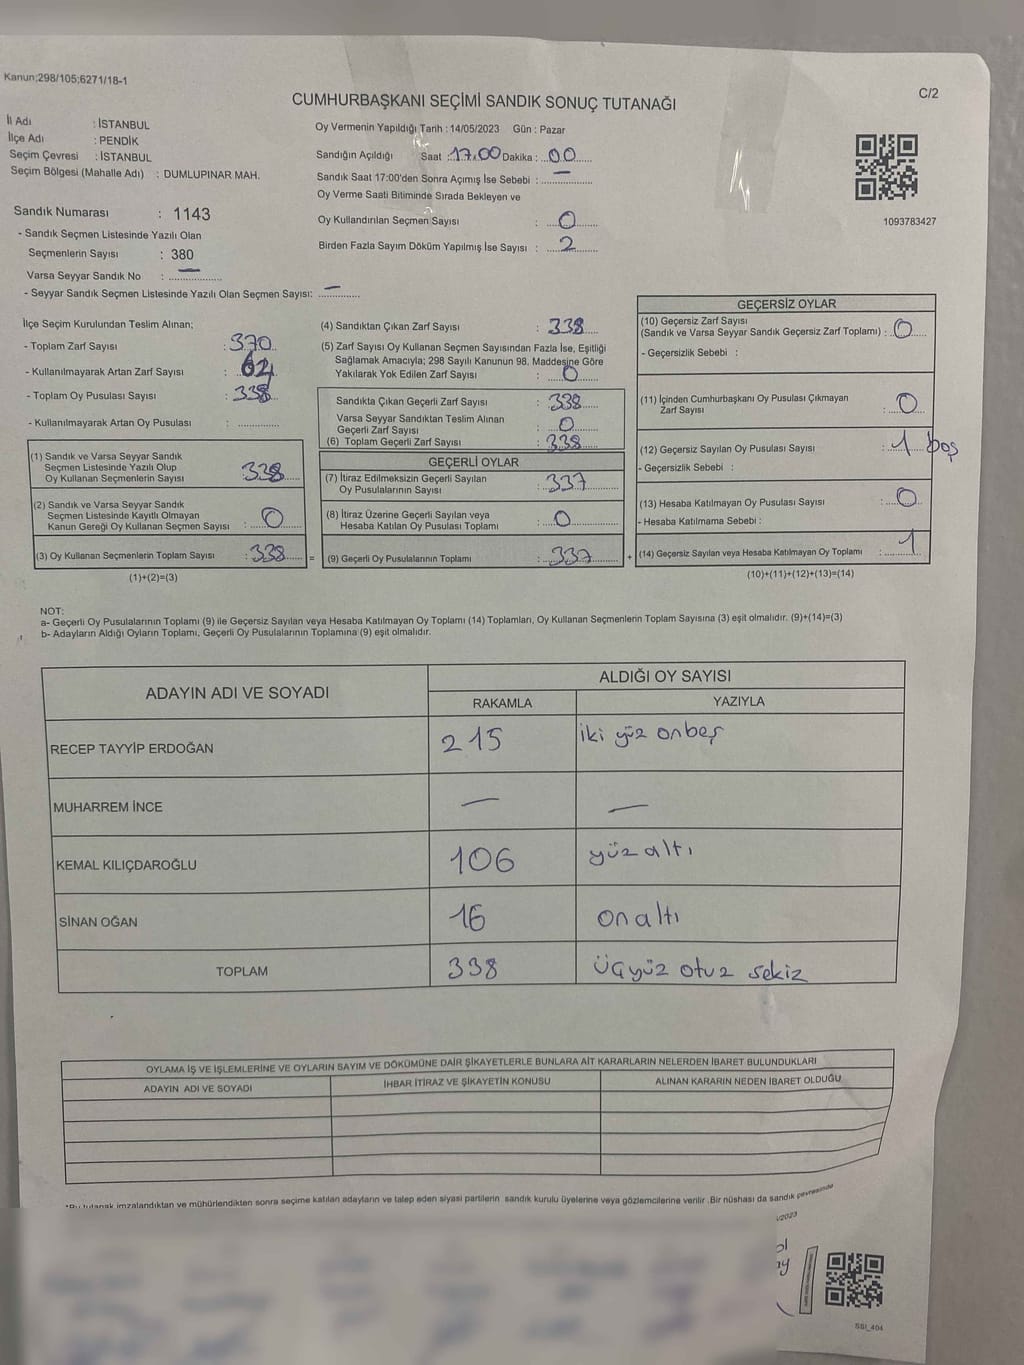 Kanun;298/105;6271/18-1
C/2
CUMHURBAŞKANI SEÇİMİ SANDIK SONUÇ TUTANAĞI
İl Adı : İSTANBUL
İlçe Adı : PENDİK
Seçim Çevresi : İSTANBUL
Seçim Bölgesi (Mahalle Adı) : DUMLUPINAR MAH.
Sandık Numarası : 1143
- Sandık Seçmen Listesinde Yazılı Olan
Seçmenlerin Sayısı : 380
Varsa Seyyar Sandık No : —
- Seyyar Sandık Seçmen Listesinde Yazılı Olan Seçmen Sayısı: —
Oy Vermenin Yapıldığı Tarih : 14/05/2023 Gün : Pazar
Sandığın Açıldığı Saat : 17.00 Dakika : 00
Sandık Saat 17:00'den Sonra Açımış İse Sebebi : —
Oy Verme Saati Bitiminde Sırada Bekleyen ve
Oy Kullandırılan Seçmen Sayısı : 0
Birden Fazla Sayım Döküm Yapılmış İse Sayısı : 2
1093783427
İlçe Seçim Kurulundan Teslim Alınan;
- Toplam Zarf Sayısı : 370
- Kullanılmayarak Artan Zarf Sayısı :
- Toplam Oy Pusulası Sayısı : 338
- Kullanılmayarak Artan Oy Pusulası :
(1) Sandık ve Varsa Seyyar Sandık
Seçmen Listesinde Yazılı Olup
Oy Kullanan Seçmenlerin Sayısı : 338
(2) Sandık ve Varsa Seyyar Sandık
Seçmen Listesinde Kayıtlı Olmayan
Kanun Gereği Oy Kullanan Seçmen Sayısı : 0
(3) Oy Kullanan Seçmenlerin Toplam Sayısı : 338
(1)+(2)=(3)
(4) Sandıktan Çıkan Zarf Sayısı : 338
(5) Zarf Sayısı Oy Kullanan Seçmen Sayısından Fazla İse, Eşitliği
Sağlamak Amacıyla; 298 Sayılı Kanunun 98. Maddesine Göre
Yakılarak Yok Edilen Zarf Sayısı : 0
Sandıkta Çıkan Geçerli Zarf Sayısı : 338
Varsa Seyyar Sandıktan Teslim Alınan
Geçerli Zarf Sayısı : 0
(6) Toplam Geçerli Zarf Sayısı : 338
GEÇERLİ OYLAR
(7) İtiraz Edilmeksizin Geçerli Sayılan
Oy Pusulalarının Sayısı : 337
(8) İtiraz Üzerine Geçerli Sayılan veya
Hesaba Katılan Oy Pusulası Toplamı : 0
= (9) Geçerli Oy Pusulalarının Toplamı : 337 +
GEÇERSİZ OYLAR
(10) Geçersiz Zarf Sayısı
(Sandık ve Varsa Seyyar Sandık Geçersiz Zarf Toplamı) : 0
- Geçersizlik Sebebi :
(11) İçinden Cumhurbaşkanı Oy Pusulası Çıkmayan
Zarf Sayısı : 0
(12) Geçersiz Sayılan Oy Pusulası Sayısı : 1 boş
- Geçersizlik Sebebi :
(13) Hesaba Katılmayan Oy Pusulası Sayısı : 0
- Hesaba Katılmama Sebebi :
(14) Geçersiz Sayılan veya Hesaba Katılmayan Oy Toplamı : 1
(10)+(11)+(12)+(13)=(14)
NOT:
a- Geçerli Oy Pusulalarının Toplamı (9) ile Geçersiz Sayılan veya Hesaba Katılmayan Oy Toplamı (14) Toplamları, Oy Kullanan Seçmenlerin Toplam Sayısına (3) eşit olmalıdır. (9)+(14)=(3)
b- Adayların Aldığı Oyların Toplamı, Geçerli Oy Pusulalarının Toplamına (9) eşit olmalıdır.
ADAYIN ADI VE SOYADI
ALDIĞI OY SAYISI
RAKAMLA YAZIYLA
RECEP TAYYİP ERDOĞAN 215 iki yüz onbeş
MUHARREM İNCE — —
KEMAL KILIÇDAROĞLU 106 yüz altı
SİNAN OĞAN 16 on altı
TOPLAM 338 üçyüz otuz sekiz
OYLAMA İŞ VE İŞLEMLERİNE VE OYLARIN SAYIM VE DÖKÜMÜNE DAİR ŞİKAYETLERLE BUNLARA AİT KARARLARIN NELERDEN İBARET BULUNDUKLARI
ADAYIN ADI VE SOYADI İHBAR İTİRAZ VE ŞİKAYETİN KONUSU ALINAN KARARIN NEDEN İBARET OLDUĞU
*Bu tutanak imzalandıktan ve mühürlendikten sonra seçime katılan adayların ve talep eden siyasi partilerin sandık kurulu üyelerine veya gözlemcilerine verilir .Bir nüshası da sandık çevresinde
/2023
SSI_404